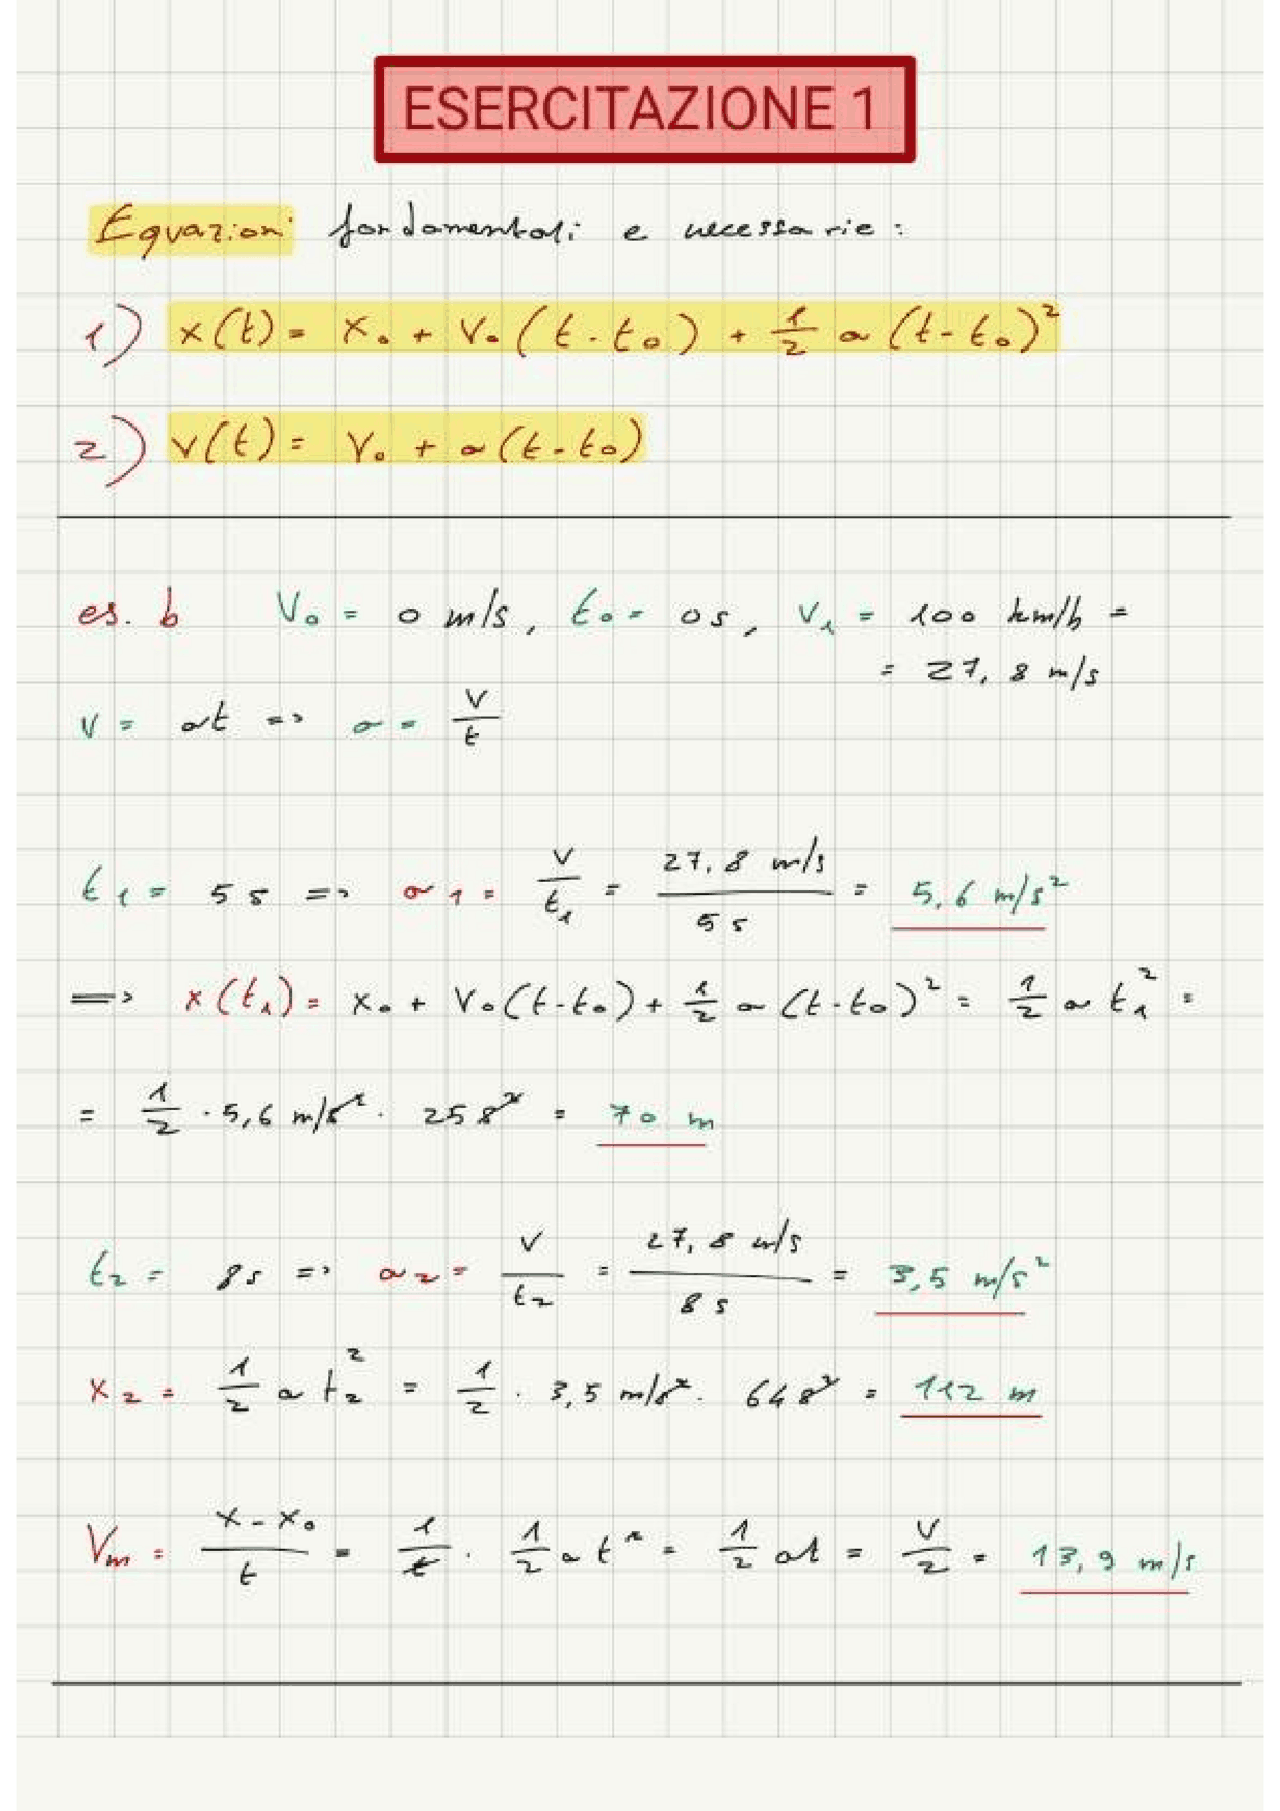 ESERCITAZIONE 1
Equazioni fondamentali e necessarie:
1) x(t) = x₀ + v₀(t-t₀) + 1/2 a (t-t₀)²
2) v(t) = v₀ + a(t-t₀)
es. b V₀ = 0 m/s, t₀ = 0s, V₁ = 100 km/h =
= 27,8 m/s
v = at => a = v/t
t₁ = 5s => a₁ = v/t₁ = 27,8 m/s / 5s = 5,6 m/s²
=> x(t₁) = x₀ + v₀(t-t₀) + 1/2 a (t-t₀)² = 1/2 a t₁² =
= 1/2 · 5,6 m/s² · 25 s² = 70 m
t₂ = 8s => a₂ = v/t₂ = 27,8 m/s / 8s = 3,5 m/s²
x₂ = 1/2 a t₂² = 1/2 · 3,5 m/s² · 64 s² = 112 m
Vm = x-x₀/t = 1/t · 1/2 a t² = 1/2 at = v/2 = 13,9 m/s